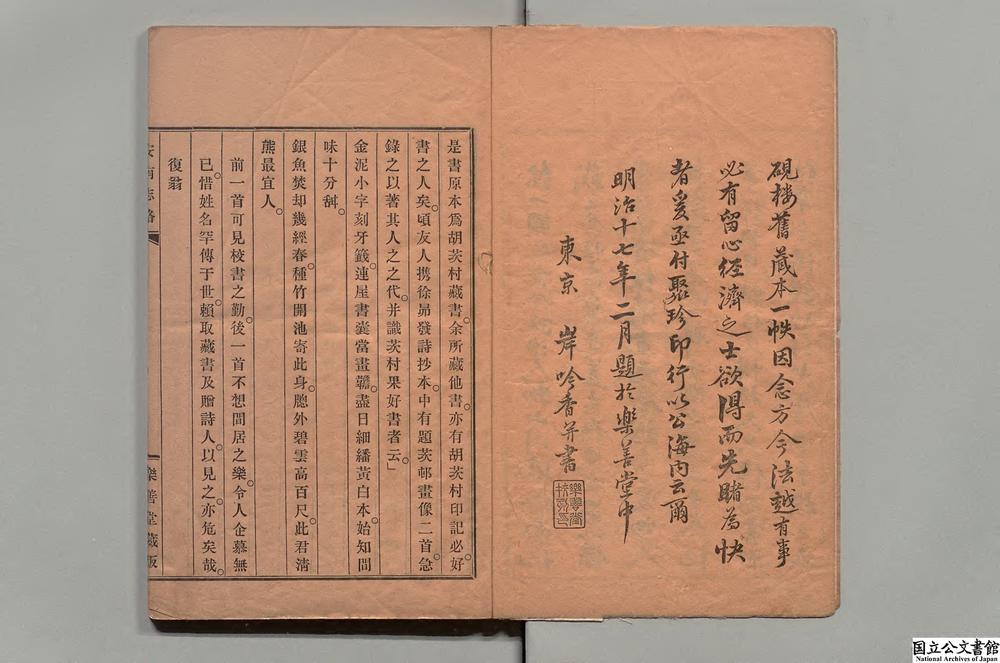 硯楼舊蔵本一帙因念方今法越有事
必有留心経濟之士欲得而先睹為快
者爰亟付聚珍印行以公海内云爾
明治十七年二月題於樂善堂中
東京 岸吟香并書
是書原本爲胡茨村藏書。余所藏他書。亦有胡茨村印記必好
書之人矣。頃友人携徐昴發詩抄本。中有題茨邨畫像二首。急
錄之以著其人之之代。并識茨村果好書者云」
金泥小字刻牙籖。連屋書嚢當畫韂。盡日細繙黃白本。始知閒
味十分甜。
銀魚焚却幾經春。種竹開池寄此身。牕外碧雲高百尺。此君清
熊最宜人。
前一首可見校書之勤。後一首不想間居之樂。令人企慕無
已。惜姓名罕傳于世。賴取藏書及贈詩人。以見之。亦危矣哉。
復翁
安南志略
樂善堂藏版
国立公文書館
National Archives of Japan